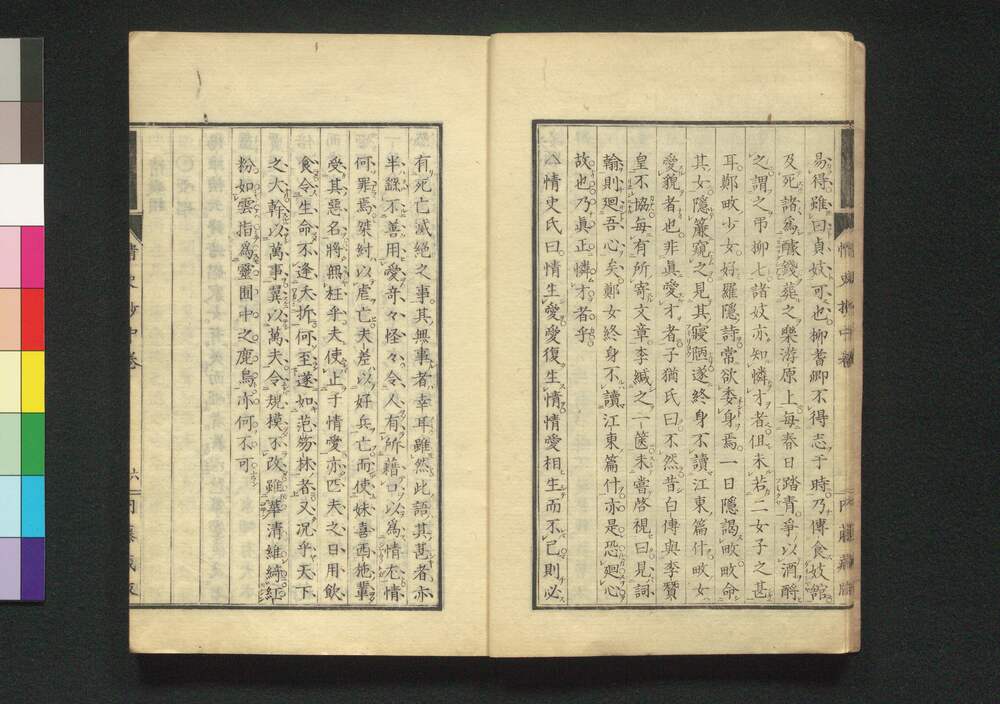 易得雖曰貞妓可也柳耆卿不得志于時乃傳食妓館
及死諸爲醵錢葬之樂游原上每春日踏青爭以酒酹
之謂之弔柳七諸妓亦知憐才者但未若二女子之甚
耳鄭畋少女好羅隱詩常欲委身焉一日隱謁畋畋命
其女隱簾窺之見其寢陋遂終身不讀江東篇什畋女
愛貌者也非眞愛才者子猶氏曰不然昔白傅與李贊
皇不協每有所寄文章李緘之一篋未嘗啓視曰見詞
翰則廻吾心矣鄭女終身不讀江東篇什亦是恐廻心
故也乃眞正憐才者乎
情史氏曰情生愛愛復生情情愛相生而不已則必
有死亡滅絕之事其無事者幸耳雖然此語其甚者亦
半謎不善用愛奇々怪々令人有所藉口以爲情尤情
何罪焉桀紂以虐亡夫差以好兵亡而使妹喜西施輩
受其惡名將無枉乎夫使止于情愛亦匹夫之日用飲
食令生命不逢夭折何至遂如范笏林者又况乎天下
之大幹以萬事翼以萬夫令規模不改雖華清維綺紅
粉如雲指爲靈囿中之鹿鳥亦何不可
情史抄中卷
六